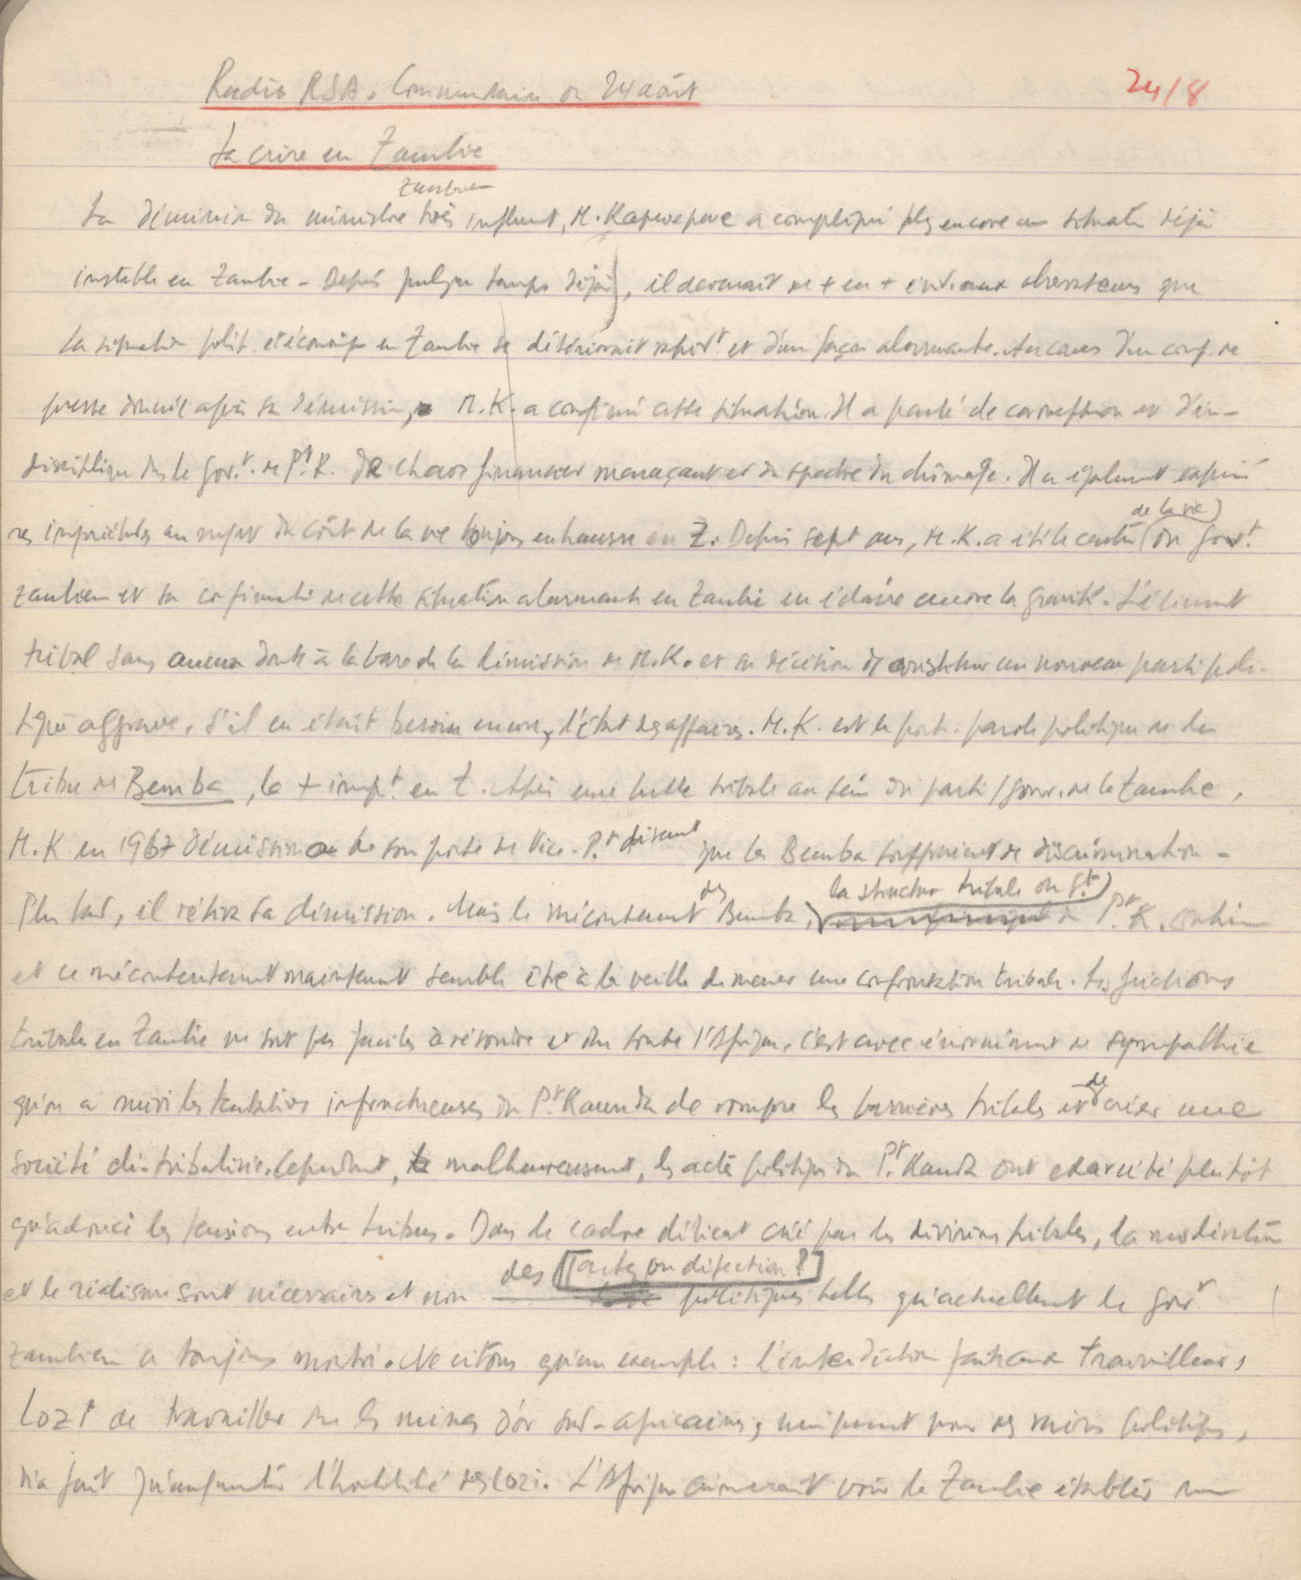 Radio RSA. Commentaire du 24 août
24/8
La crise en Zambie
zambien
La démission du ministre très influent, M. Kapwepwe a compliqué plus encore une situatn déjà
instable en Zambie - Depuis quelque temps déjà, il devenait de + en + évid. aux observateurs que
la situation polit. et économiq en Zambie se détériorait rapidt et d'un façon alarmante. Au cours d'un conf. de
presse donnée après sa démission, M. K. a confirmé cette situation. Il a parlé de corruption et d'in-
discipline ds le Govt. de Pt. K. De chaos financier menaçant et du spectre du chômage. Il a également exprimé
ses inquiétudes au sujet du coût de la vie toujours en hausse en Z. Depuis sept ans, M. K. a été le centre (du Govt.
de la vie)
zambien et sa confirmatn de cette situation alarmante en Zambie en éclaire encore la gravité. L'élément
tribal sans aucun doute à la base de la démission de M. K. et sa décision de constituer un nouveau parti poli-
tique aggrave, s'il en était besoin encore, l'état des affaires. M. K. est le porte-parole politique de la
tribu des Bemba, la + impt. en Z. Après une lutte tribale au sein du parti/gouv. de la Zambie,
M. K en 1967 démissionna de son poste de Vice-Pt disant que les Bemba souffraient de discrimination -
Plus tard, il retira sa démission. Mais le mécontement des Bemba,
la structure tribale du Gt.)
Pt K. continu
et ce mécontentement maintenant semble être à la veille de mener une confrontation tribale. Les frictions
tribales en Zambie ne sont pas faciles à résoudre et ds toute l'Afrique, c'est avec énormément de sympathie
qu'on a suivi les tentatives infructueuses du Pt. Kaunda de rompre les barrières tribales et de créer une
société détribalisée. Cependant, malheureusement, les actes politiques du Pt. Kaunda ont exacerbé plutôt
qu'adouci les tensions entre tribus. Dans le cadre délicat créé par les divisions tribales, la modération
des [actes ou direction ?]
et le réalisme sont nécessaires et non politiques telles qu'actuellement le Govt
zambien a toujours montré. Ne citons qu'un exemple : l'interdiction faite aux travailleurs
Lozi de travailler ds les mines d'or sud-africaines, uniquement pour des raisons politiques,
n'a fait qu'augmenter l'hostilité des Lozi. L'Afrique aimerait voir la Zambie établir une